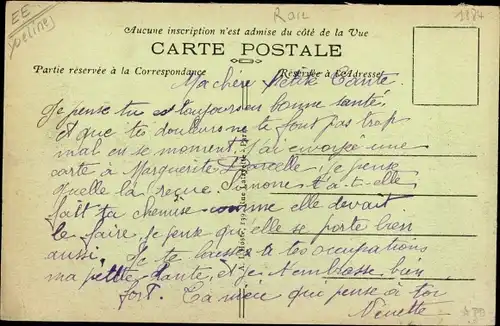 EE
Yvelines
RAIL
Aucune inscription n'est admise du côté de la Vue
CARTE POSTALE
Partie réservée à la Correspondance
Réservée à l'Adresse
Ma chère Petite Tante.
Je pense tu es toujours en bonne santée
et que tes douleurs ne te font pas trop
mal en se moment. J'ai envoyé une
carte à Marguerite je pense
quelle la reçue. Simone t'a-t-elle
fait ta chemise comme elle devait
le faire, je pense qu'elle se porte bien
aussi. Je te laisse à tes occupations
ma petite tante, et je t'embrasse bien
fort. Ta nièce qui pense à toi
Nenette